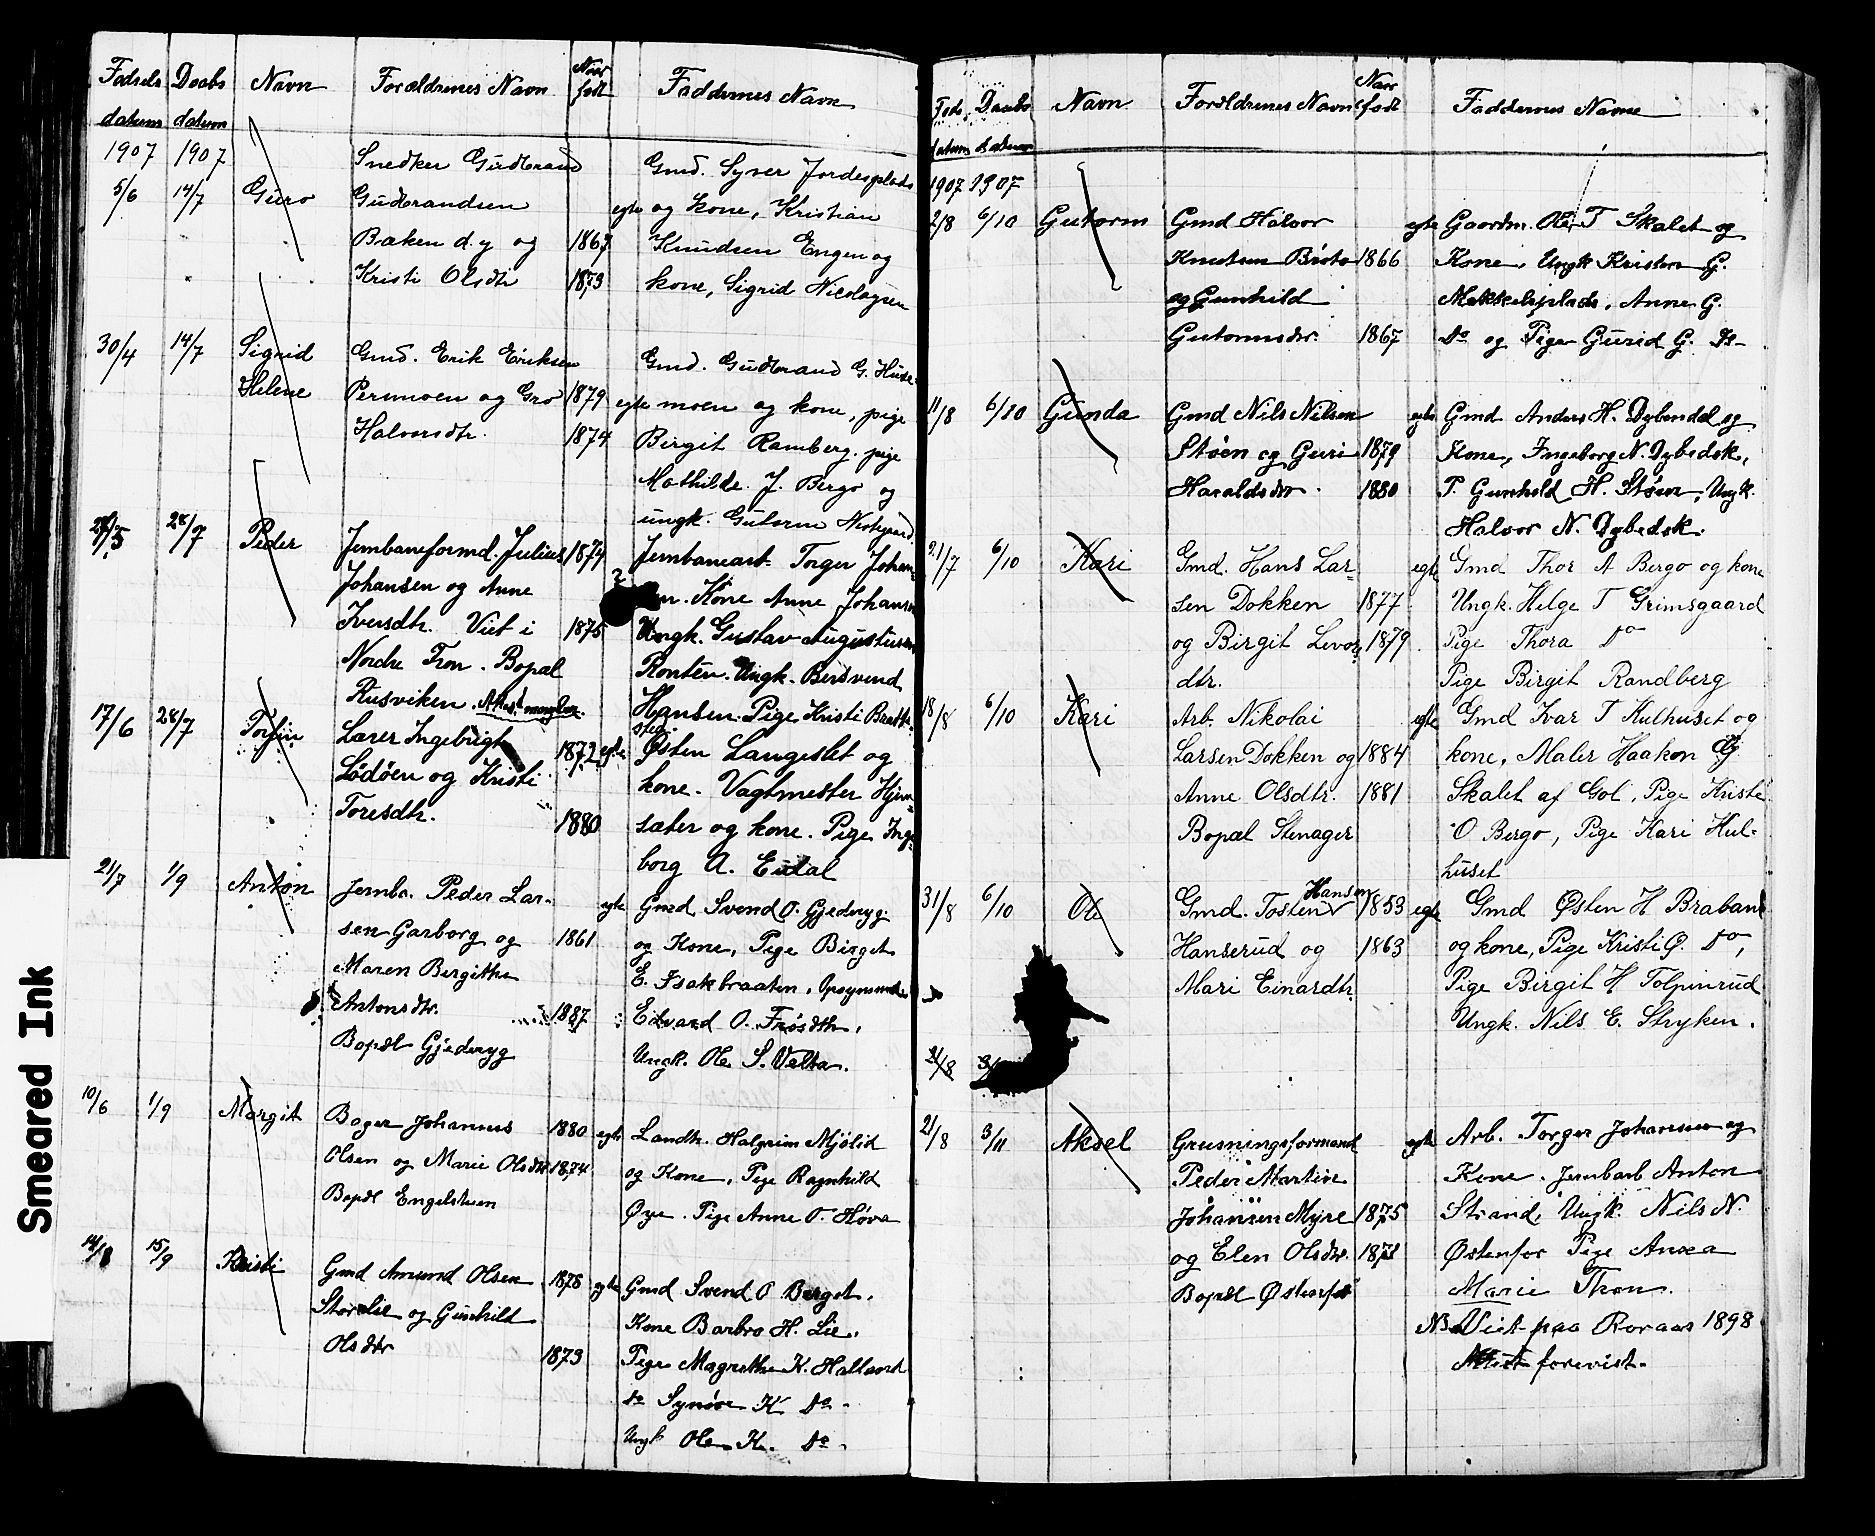 Fødsels Daabs Navn Forældrenes Navn Naar født Faddernes Navn
datum datum
1907 1907 Snedker Gudbrand Gmd. Syver Jordesplads
5/6 14/7 Guro Gudbrandsen egte og kone, Kristian
Bæken d.y og 1867 Knudsen Engen og
Kristi Olsdtr 1873 kone, Sigrid Nicolaysen
30/4 14/7 Sigrid Gmd. Erik Eriksen Gmd. Gudbrand G. Huse-
Helene Perumoen og Gro 1879 egte moen og kone, pige
Halvorsdtr. 1874 Birgit Ramberg. pige
Mathilde J. Bergo og
ungk. Gutorm
28/7 Peder Jernbaneformd. Julius 1874 Jernbanearb. Torger Johan-
Johansen og Anne Kone Anne Johansen
Iversdtr. Viet i 1875 Ungk. Gustav Augustusen
Nordre Fron. Bopæl Ronten. Ungk. Bersvend
Rusviken. Attest mangler. Hansen. Pige Kristi Bratte-
17/6 28/7 Torfin Lærer Ingebrigt 1872 egte Østen Langeslet og
Lödöen og Kristi kone. Vagtmester Hjem-
Toresdtr. 1880 sæter og kone. Pige Inge-
borg A. Eidal
21/7 1/9 Anton Jernba. Peder Lar- egte Gmd Svend O. Gjederyg
sen Garborg og 1861 og Kone, Pige Birget
Maren Bergithe E. Isakbraaten,
Antonsdtr. 1887 Edvard O. Frøsdth,
Bopæl Gjederyg Ungk. Ole S. Velta.
10/6 1/9 Margit Bager Johannes 1880 egte Landh. Halgrim Mjølid
Olsen og Marie Olsdtr 1874 og Kone, Pige Ragnhild
Bopæl Engelsteen Øye. Pige Anne O. Hóva
14/8 15/9 Kristi Gmd Amund Olsen 1878 egte Gmd Svend O Berget,
Storelie og Gunhild Kone Barbro H. Lie,
Olsdtr 1873 Pige Magrethe K. Hallaord
do Synöve K do.
Ungk Ole K. do.
Føds. Daabs Navn Forældrenes Navn Naar født Faddernes Navne
datum datum
1907 1907
2/8 6/10 Gutorm Gmd Halvor egte Gaardm. Ole T Skalet og
Knutsen Bróto 1866 Kone, Ungk Kristen G.
og Gunhild Mekkelsplads, Anne G.
Gutormsdr. 1867 do og Pige Gurid G. do
11/8 6/10 Gunda Gmd Nils Nilsen egte Gmd Anders H. Dybendal og
Stóen og Guri 1879 Kone, Ingeborg N. Dybedsk,
Haraldsdtr. 1880 P. Gunhild H. Stóen, Ungk.
Halvor N. Dybedsk.
21/7 6/10 Kari Gmd. Hans Lar- egte Gmd Thor A Bergo og kone
sen Dokken 1877 Ungk. Helge T Grimsgaard
og Birgit Levor 1879 Pige Thora do
dtr. Pige Birgit Randberg
18/8 6/10 Kari Arb. Nikolai egte Gmd Ivar T Hulhuset og
Larsen Dokken og 1884 kone, Maler Haakon
Anne Olsdtr. 1881 Skalet af Gol, Pige Kristi
Bopæl Stenager O Bergo, Pige Kari Hul-
huset
31/8 6/10 Ole Gmd. Tosten Hansen 1853 egte Gmd Østen H Braband
Hanserud og 1863 og kone, Pige Kristi Ø. do,
Mari Einardtr. Pige Birgit H Tolpinrud
Ungk. Nils E. Stryken.
21/8 3/
21/8 3/11 Aksel Grusningsformand egte Arb. Torger Johansen og
Peder Martin Kone. Jernbarb Anton
Johansen Myre 1875 Strand, Ungk. Nils N.
og Elen Olsdtr. 1871 Østenfor Pige Anna
Bopæl Østenfor Marie Thron.
NB Viet paa Roraas 1898
Attest forevist.
Smeared Ink